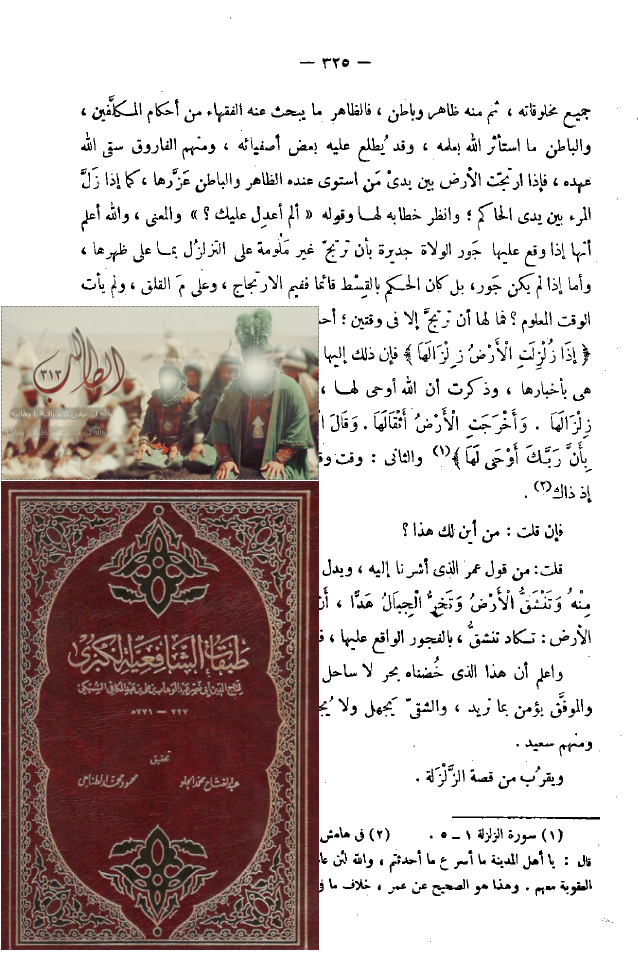 — ٣٢٥ —
جميع مخلوقاته ، ثم منه ظاهر وباطن ، فالظاهر ما يبحث عنه الفقهاء من أحكام المكلَّفين ،
والباطن ما استأثر الله بعلمه ، وقد يُطلع عليه بعض أصفيائه ، ومنهم الفاروق سقى الله
عهده ، فإذا ارتجّت الأرض بين يدىْ مَن استوى عنده الظاهر والباطن عَزَّرها ، كما إذا زَلَّ
المرء بين يدى الحاكم ؛ وانظر خطابه لها وقوله « ألم أعدِل عليك ؟ » والمعنى ، والله أعلم
أنها إذا وقع عليها جَور الولاة جديرة بأن ترتجّ غير مَلُومة على التزلزُل بما على ظهرها ،
وأما إذا لم يكن جَور، بل كان الحكم بالقِسْط قائما ففيم الارتجاج ، وعلى مَ القلق ، ولم يأت
الوقت المعلوم ؟ فما لها أن ترتجَّ إلا فى وقتين ؛
﴿ إِذَا زُلْزِلَتِ الْأَرْضُ زِلْزَالَهَا ﴾ فإن ذلك إليها
هى بأخبارها ، وذكرت أن الله أوحى لها ،
زِلْزَالَهَا . وَأَخْرَجَتِ الْأَرْضُ أَثْقَالَهَا . وَقَالَ
بِأَنَّ رَبَّكَ أَوْحَى لَهَا ﴾(١) والثانى : وقت
إذ ذاك(٢) .
فإن قلت : من أين لك هذا ؟
قلت: من قول عمر الذى أشرنا إليه ، ويدل
مِنْهُ وَتَنْشَقُّ الْأَرْضُ وَتَخِرُّ الْجِبَالُ هَدًّا ،
الأرض : تكاد تنشقُّ ، بالفجور الواقع عليها ،
واعلم أن هذا الذى خُضناه بحر لا ساحل
والموفَّق يؤمن بما نريد ، والشقىّ يجهل ولا
ومنهم سعيد .
ويقرُب من قصة الزَّلْزَلة .
(١) سورة الزلزلة ١ – ٥ . (٢) فى هامش
قال : يا أهل المدينة ما أسرع ما أحدثتم ، والله لئن
العقوبة معهم . وهذا هو الصحيح عن عمر ، خلاف ما
الطالب
٣١٣
طبقات الشافعية الكبرى
لتاج الدين أبي نصر عبد الوهاب بن علي بن عبد الكافي السبكي
٧٢٧ — ٧٧١ هـ
تحقيق
عبد الفتاح محمد الحلو
محمود محمد الطناحي